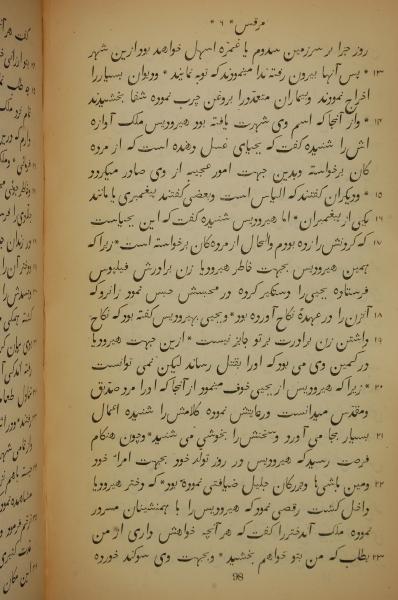 مرقس * ۶ *
روز جزا بر سرزمین سدوم یا غمزه اسهل خواهد بود ازین شهر
۱۳ * پس آنها بیرون رفته ندا مینمودند که توبه نمایند * و دیوان بسیار را
اخراج نمودند و بیماران متعدد را بروغن چرب نموده شفا بخشیدند
۱۴ * و از آنجا که اسم وی شهرت یافته بود هیرودیس ملک آوازه
اش را شنیده گفت که یحیای غسل دهنده است که از مرده
کان برخواسته و بدین جهت امور عجیبه از وی صادر میگردد
۱۵ * و دیگران گفتند که الیاس است و بعضی گفتند پیغمبری یا مانند
۱۶ یکی از پیغمبران * اما هیرودیس شنیده گفت که این یحیاست
۱۷ که گردنش را زده بودم والحال از مرده کان برخواسته است * زیرا که
همین هیرودیس بجهت خاطر هیرودیا زن برادرش فیلپوس
فرستاده یحیی را دستگیر کرده در محبسش حبس نمود زانرو که
۱۸ آنزن را در عهدهٔ نکاح آورده بود * و یحیی بهیرودیس گفته بود که نکاح
۱۹ داشتن زن برادرت بر تو جایز نیست * ازین جهت هیرودیا
در کمین وی می بود که او را بقتل رساند لیکن نمی توانست
۲۰ * زیرا که هیرودیس از یحیی خوف مینمود از آنجا که او را مرد صدیق
و مقدس میدانست و رعایتش نموده کلامش را شنیده اعمال
۲۱ بسیار بجا می آورد و سخنش را بخوشی می شنید * و چون هنگام
فرصت رسید که هیرودیس در روز تولد خود بجهت امراء خود
۲۲ و مین باشی ها و بزرگان جلیل ضیافتی نموده بود * که دختر هیرودیا
داخل گشت رقصی نمود که هیرودیس را با همنشینان مسرور
نموده ملک آندختر را گفت که هر آنچه خواهش داری از من
۲۳ بطلب که من بتو خواهم بخشید * و بجهت وی سوگند خورده
98